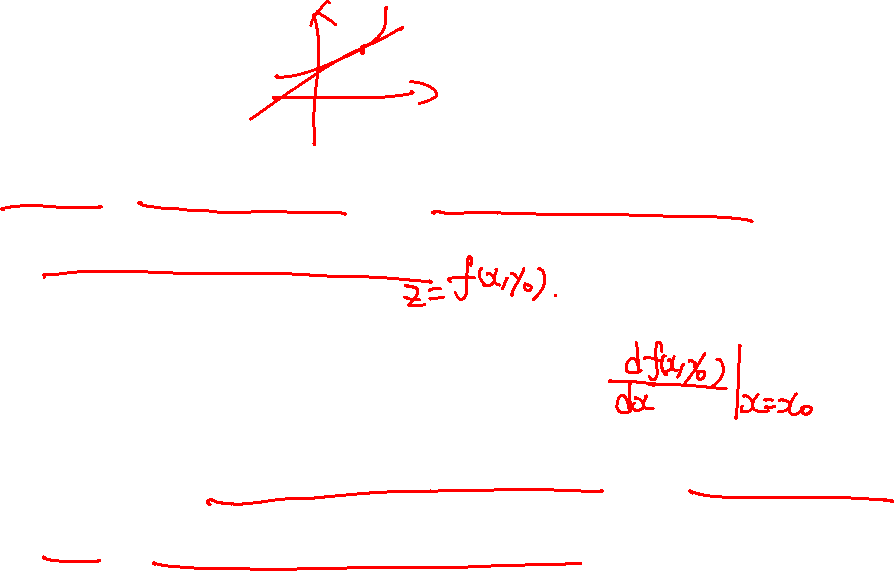 z = f(x, y₀).
df(x, y₀)/dx |x=x₀